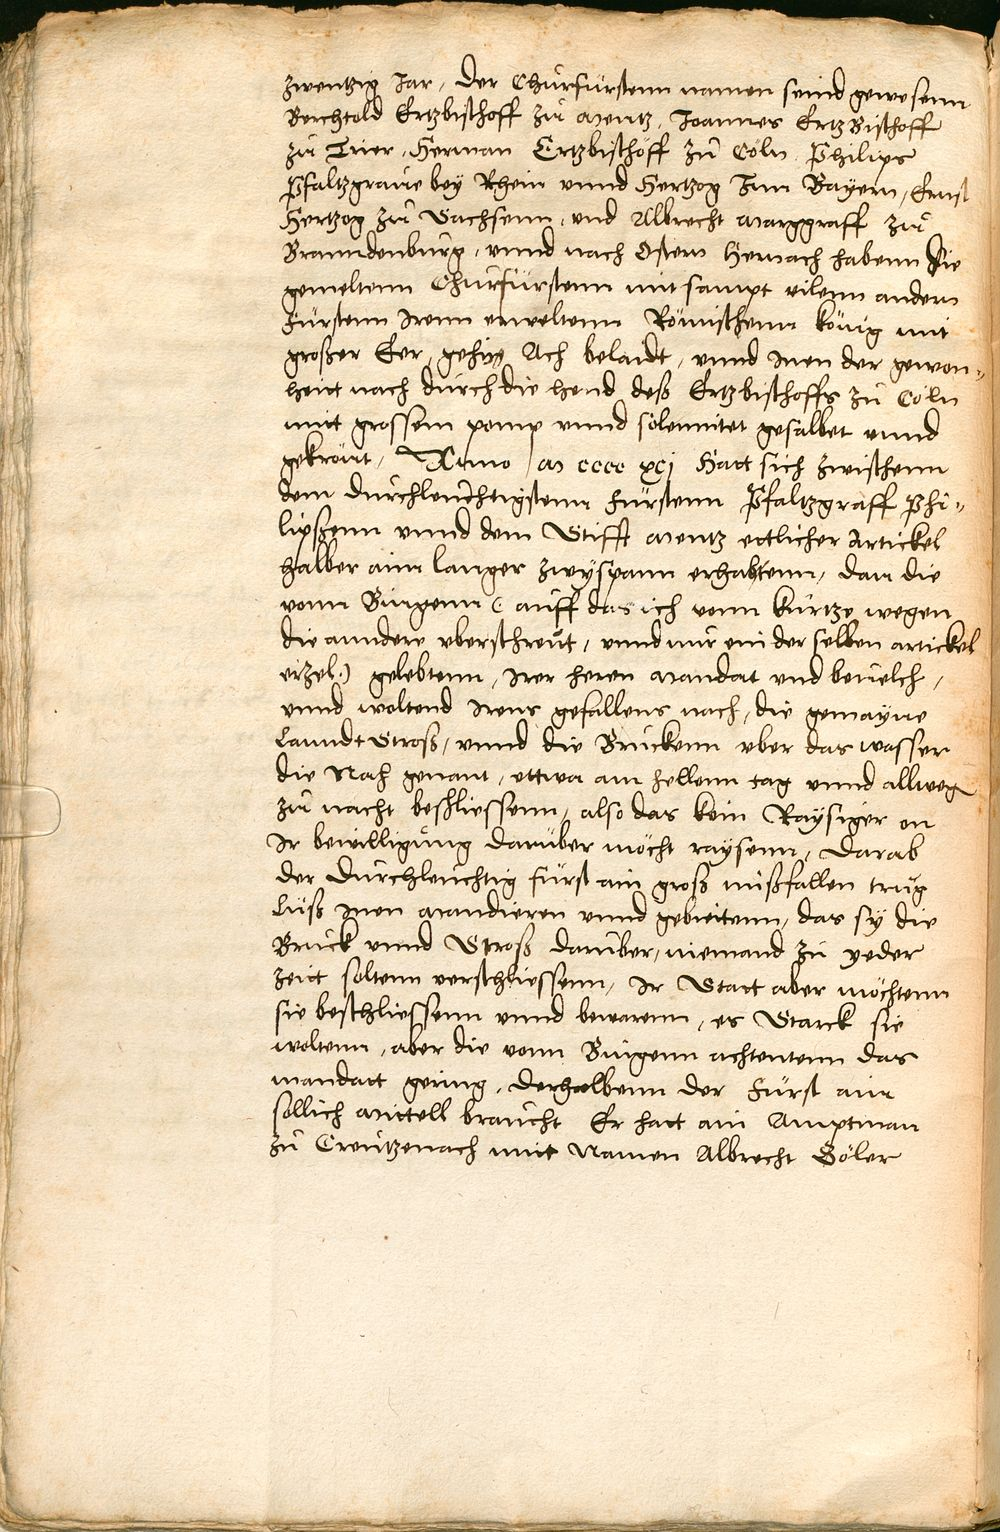 zwentzig Jar, der Churfürstenn namen seind gewesenn
Berchtold Ertzbischoff zů Mentz, Joannes ErtzBischoff
zů Trier, Herman Ertzbischoff zů Cöln, Philips
Pfaltzgraue bey Rhein vnnd Hertzog Inn Bayern, Ernst
Hertzog zů Sachsenn, vnd Albrecht Marggraff zů
Branndenburg, vnnd nach Ostern Hernach habenn die
gemeltenn Churfürstenn mit sampt vilenn andern
fürstenn Irenn erweltenn Römischenn könig mit
großer Eer, gehn Ach belaidt, vnnd Inen der gewon-
heit nach durch die hend deß Ertzbischoffs zů Cöln
mit grossem pomp vnnd solennitet gesalbet vnnd
gekrönt, Anno M cccc xcj Hatt sich zwischenn
dem durchleuchtigstenn fürstenn Pfaltzgraff Phi-
lipßenn vnnd dem Stifft Mentz ettlicher Artickel
halber ainn langer zwyspann erhabtenn, dan die
vonn Bingenn (auff das ich vonn kürtze wegen
die anndere vberschreut, vnnd nur ein der selben artickel
erzel) gelebtenn, Irer heren Mandat vnd beuelch,
vnnd woltend Irens gefallens nach, die gemayne
Lanndt Stroß, vnnd die Bruckenn vber das wasser
die Nah genant, ettwa am hellenn tag vnnd allweg
zů nacht beshliessenn, also das kein Raysiger on
Ir bewilligung darüber möcht raysenn, Darab
der Durchleuchtig fürst ain groß mißfallen trůg
Ließ Inen Mandieren vnnd gebieitenn, das sy die
Bruck vnnd Stroß darüber, niemand zů yeder
zeit soltenn verschliessenn, Ir Statt aber möchtenn
sie beschliessenn vnnd bewarenn, es Starck sie
woltenn, aber die vonn Bingenn achtentenn das
mandatt gering, derhalbenn der Fürst ain
sollich Mittell braucht Er hatt ain Amptman
zů Creutzenach mit Namen Albrecht Göler